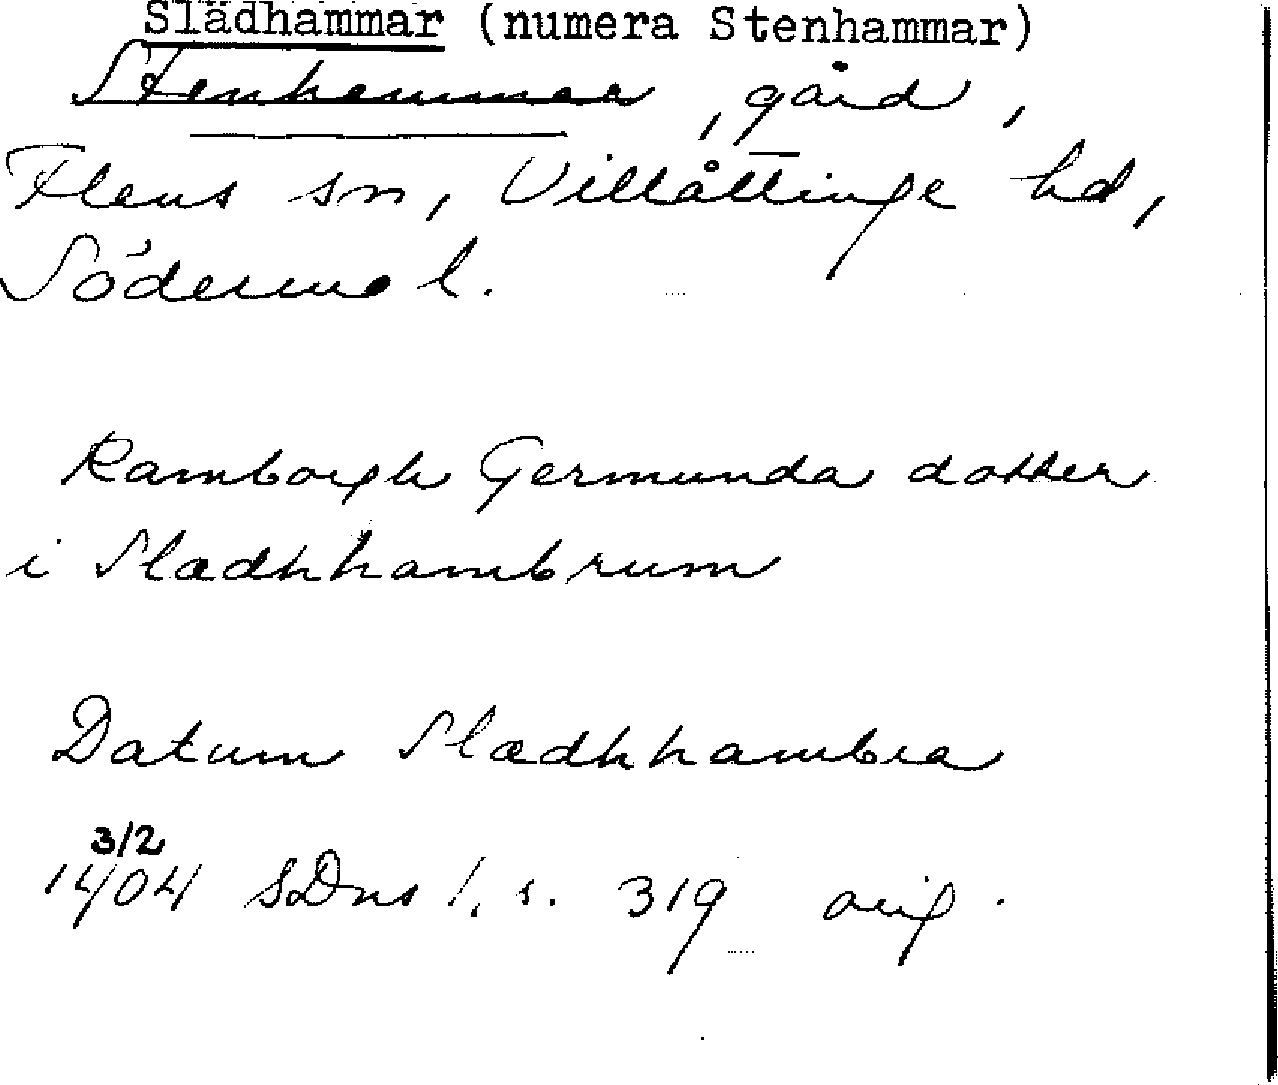 Slädhammar (numera Stenhammar)
Stenhammar, gård,
Flens sn, Villåttinge hd,
Söderml.
Ramborgh Germunda dotter
i Sladhhambrum
Datum Sladhhambra
3/2
1404 SDns 1, s. 319 orig.